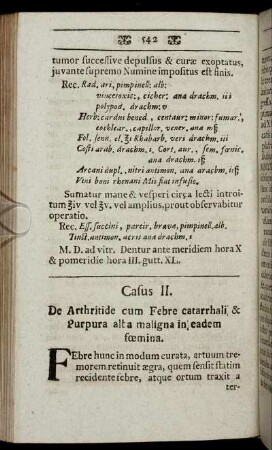 542
tumor successive depulsus & curæ exoptatus,
juvante supremo Numine impositus est finis.
Rec. Rad. ari, pimpinell: alb:
vincetoxic:, cicher; ana drachm. iii
polypod, drachm; v
Herb: cardui bened, centaur; minor: fumar:,
cochlear., capillor, vener, ana mß
Fol. senn. el. ʒi Rhabarb, veri drachm. iii
Costi arab, drachm. i. Cort, aur., sem, fœnic,
ana drachm. iß
Arcani dupl., nitri antimon, ana drachm, iß
Vini boni rhenani Mis fiat infusio.
Sumatur mane & vesperi circa lecti introi-
tum ℥iv vel ℥v. vel amplius, prout observabitur
operatio.
Rec. Ess, succini, parcir, brava, pimpinell, alb.
Tinct, antimon, acris ana drachm, i
M. D. ad vitr. Dentur ante meridiem hora X
& pomeridie hora III. gutt. XL.
Casus II.
De Arthritide cum Febre catarrhali, &
Purpura alba maligna in eadem
fœmina.
FEbre hunc in modum curata, artuum tre-
morem retinuit ægra, quem sensit statim
recidente febre, atque ortum traxit a
ter-